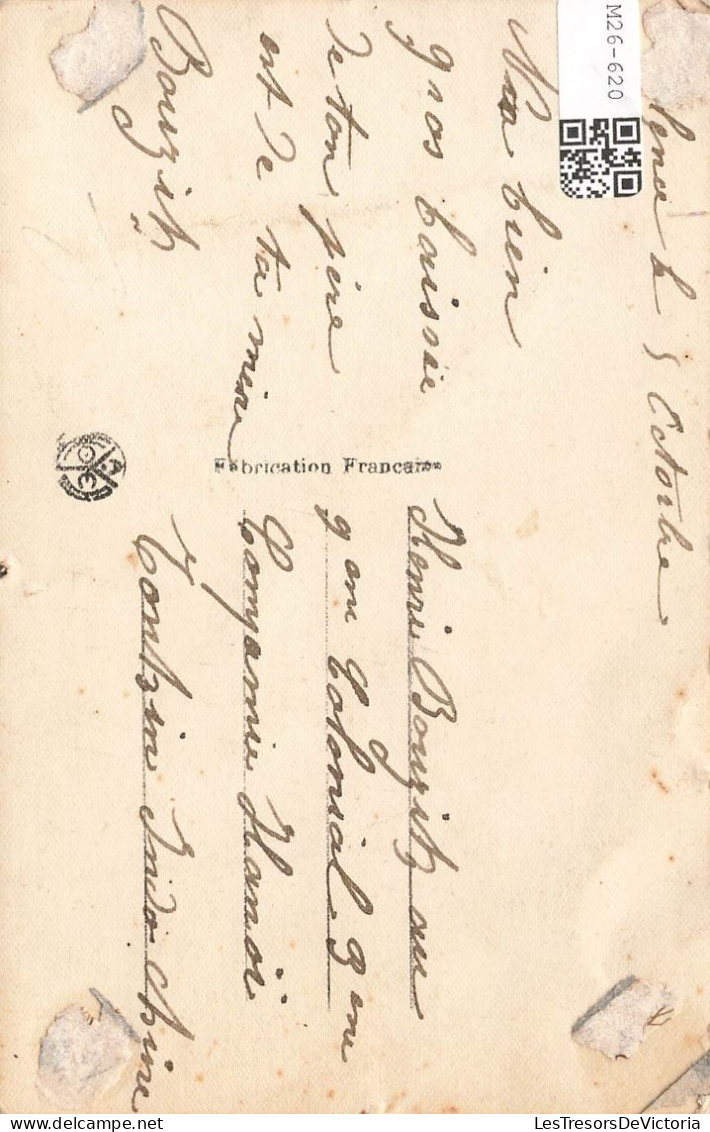 M26-620
le 5 Octorbre
bien
gros baissée
de ton père
est de ta mère
Bouzitz
Fabrication Française
Henri Bouzitz au
gem Colonial 9eme
Compamie Hanoï
Tontzin Indo-Chine
© LesTresorsDeVictoria